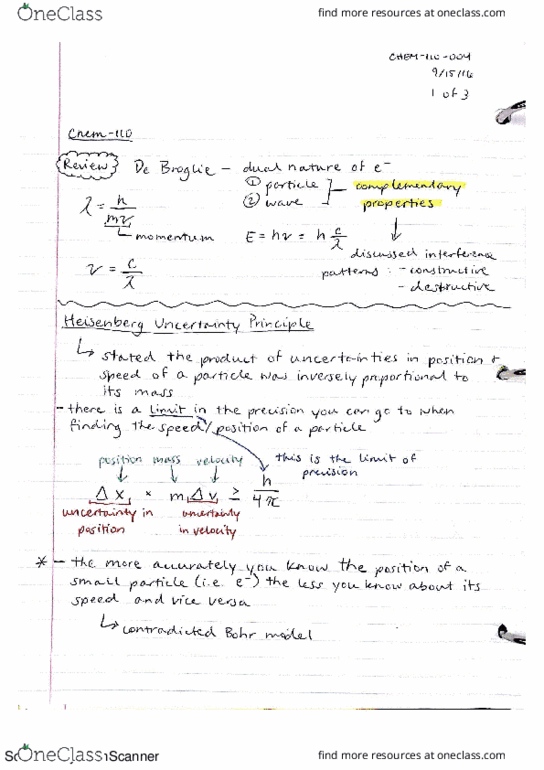 OneClass
find more resources at oneclass.com
CHEM-110-004
9/15/16
1 of 3
Chem-110
Review De Broglie - dual nature of e⁻
① particle
② wave
complementary properties
λ = h/mv
momentum
E = hν = h c/λ
ν = c/λ
discussed interference
patterns: - constructive
- destructive
Heisenberg Uncertainty Principle
↳ stated the product of uncertainties in position +
speed of a particle was inversely proportional to
its mass
- there is a limit in the precision you can go to when
finding the speed/position of a particle
position mass velocity
this is the limit of
precision
Δx × mΔv ≥ h/4π
uncertainty in position
uncertainty in velocity
* - the more accurately you know the position of a
small particle (i.e. e⁻) the less you know about its
speed and vice versa
↳ contradicted Bohr model
OneClass
Scanner
find more resources at oneclass.com